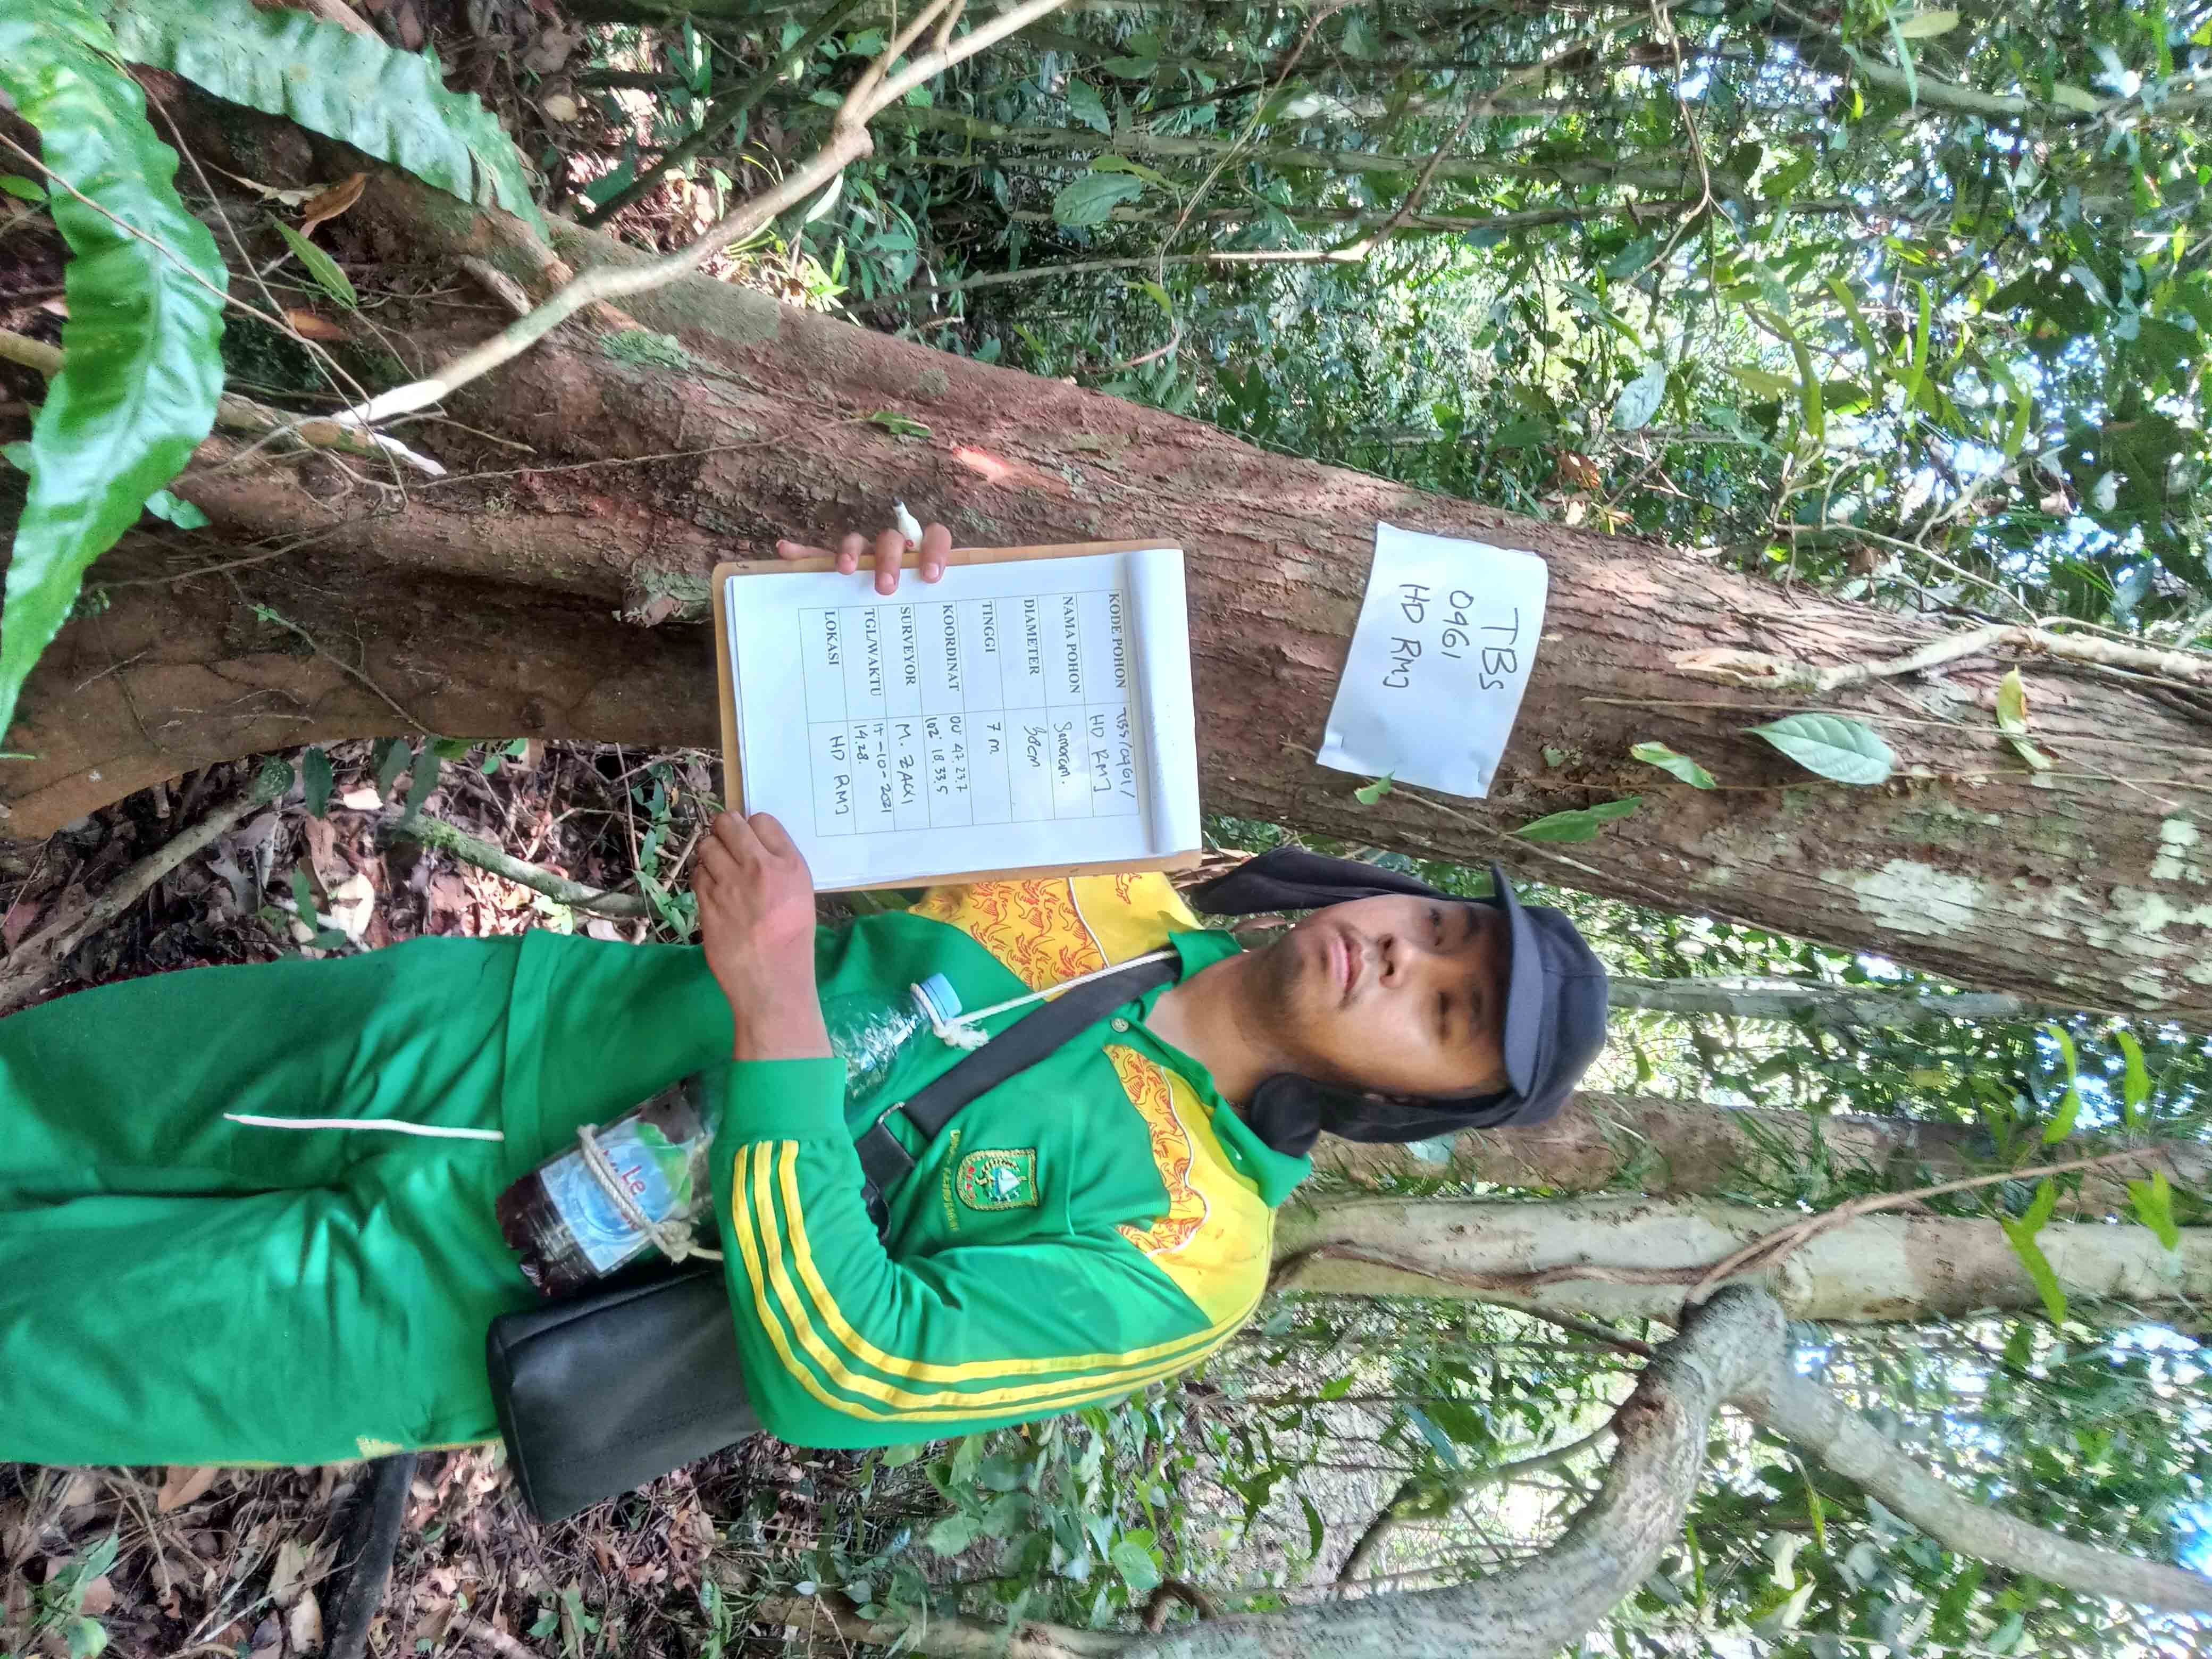 TBS
0461
HD RMJ
KODE POHON TBS/0461/
HD RMJ
NAMA POHON Samaram.
DIAMETER 38cm
TINGGI 7 m.
KOORDINAT 00° 47. 23.7
102° 18. 33.5
SURVEYOR M. ZAQI
TGL/WAKTU 15-10-2021
14.28.
LOKASI HD RMJ
Le